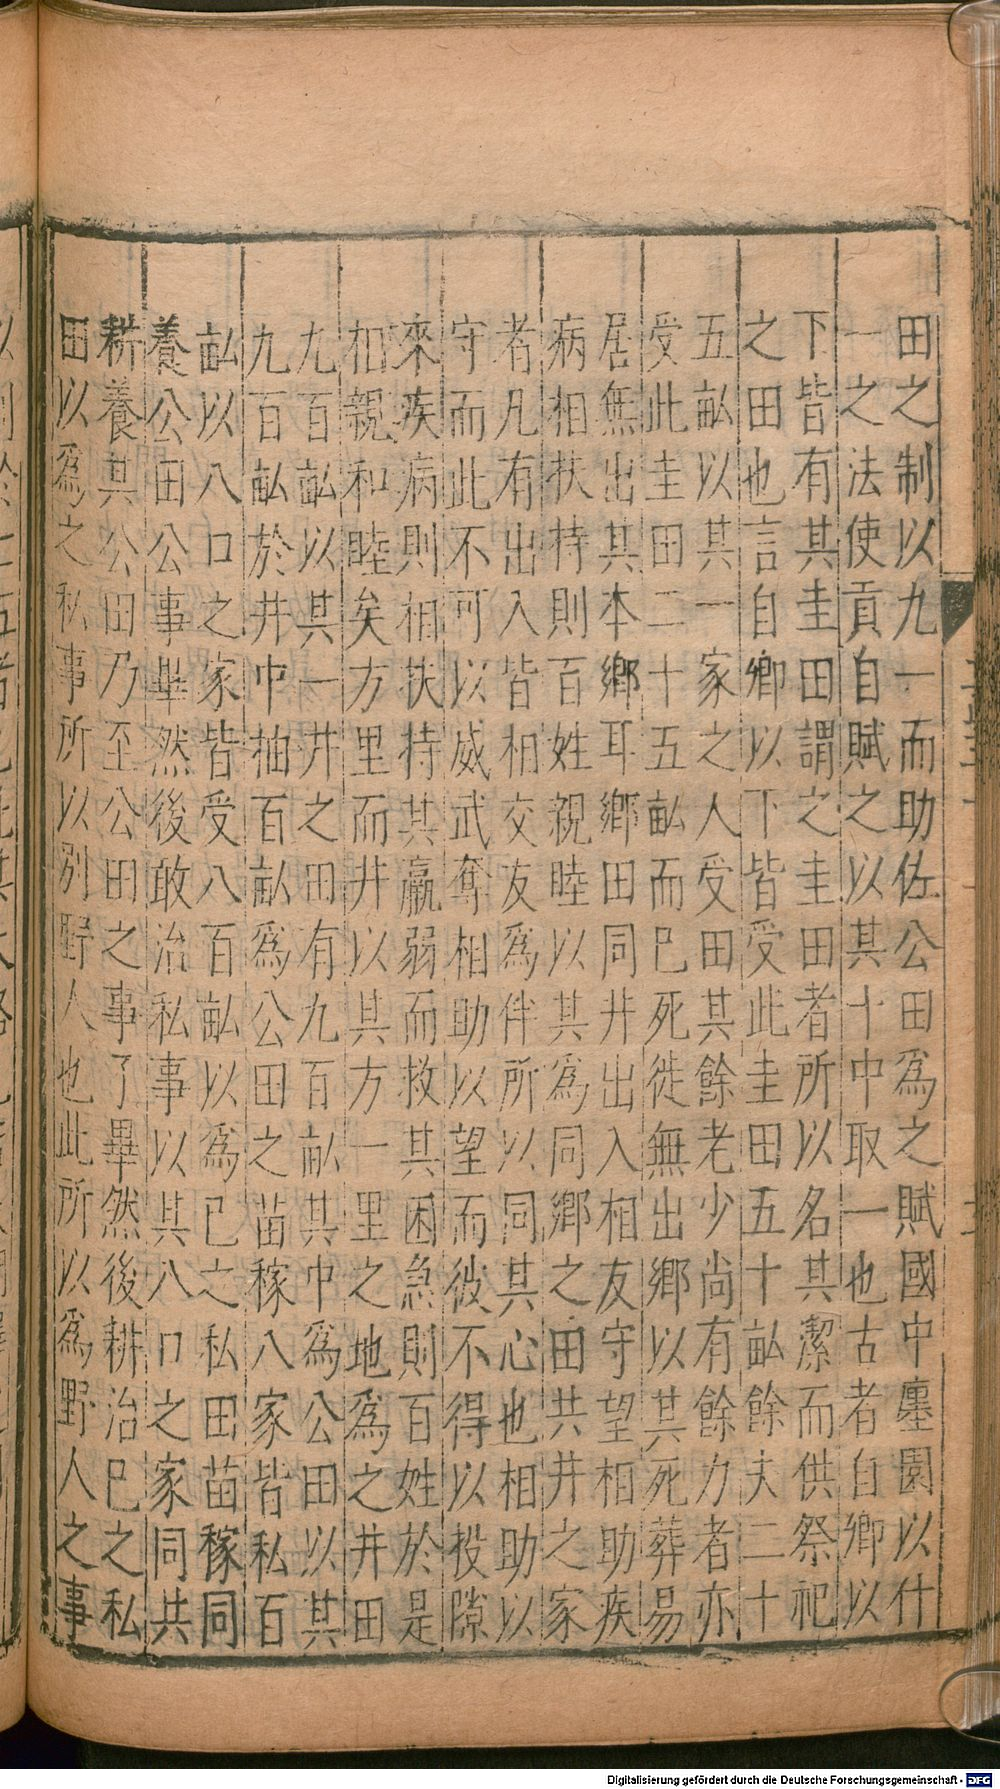 田之制以九一而助佐公田爲之賦國中廛園以什
一之法使貢自賦之以其十中取一也古者自卿以
下皆有其圭田謂之圭田者所以名其潔而供祭祀
之田也言自卿以下皆受此圭田五十畝餘夫二十
五畝以其一家之人受田其餘老少尚有餘力者亦
受此圭田二十五畝而已死徙無出鄉以其死葬易
居無出其本鄉耳鄉田同井出入相友守望相助疾
病相扶持則百姓親睦以其爲同鄉之田共井之家
者凡有出入皆相交友爲伴所以同其心也相助以
守而此不可以威武奪相助以望而彼不得以投隙
來疾病則相扶持其羸弱而救其困急則百姓於是
相親和睦矣方里而井以其方一里之地爲之井田
九百畝以其一井之田有九百畝其中爲公田以其
九百畝於井中抽百畝爲公田之苗稼八家皆私百
畝以八口之家皆受八百畝以爲已之私田苗稼同
養公田公事畢然後敢治私事以其八口之家同共
耕養其公田乃至公田之事了畢然後耕治已之私
田以爲之私事所以別野人也此所以爲野人之事
Digitalisierung gefördert durch die Deutsche Forschungsgemeinschaft - DFG